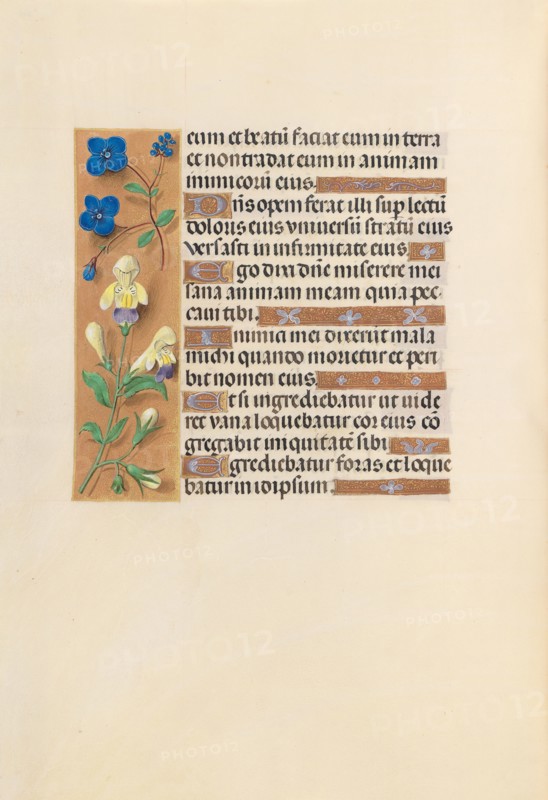 eum et beatū faciat eum in terra
et non tradat eum in animam
inimicorū eius.
Dn̄s opem ferat illi sup lectū
doloris eius vniuersū stratū eius
versasti in infirmitate eius.
Ego dixi dn̄e miserere mei
sana animam meam quia pec
caui tibi.
Inimici mei dixerūt mala
michi quando morietur et peri
bit nomen eius.
Et si ingrediebatur ut uide
ret vana loquebatur cor eius cō
gregabit iniquitatē sibi
Egrediebatur foras et loque
batur in idipsum.
PHOTO12
PHOTO12
PHOTO12
PHOTO12
PHOTO12
PHOTO12
PHOTO12
PHOTO12